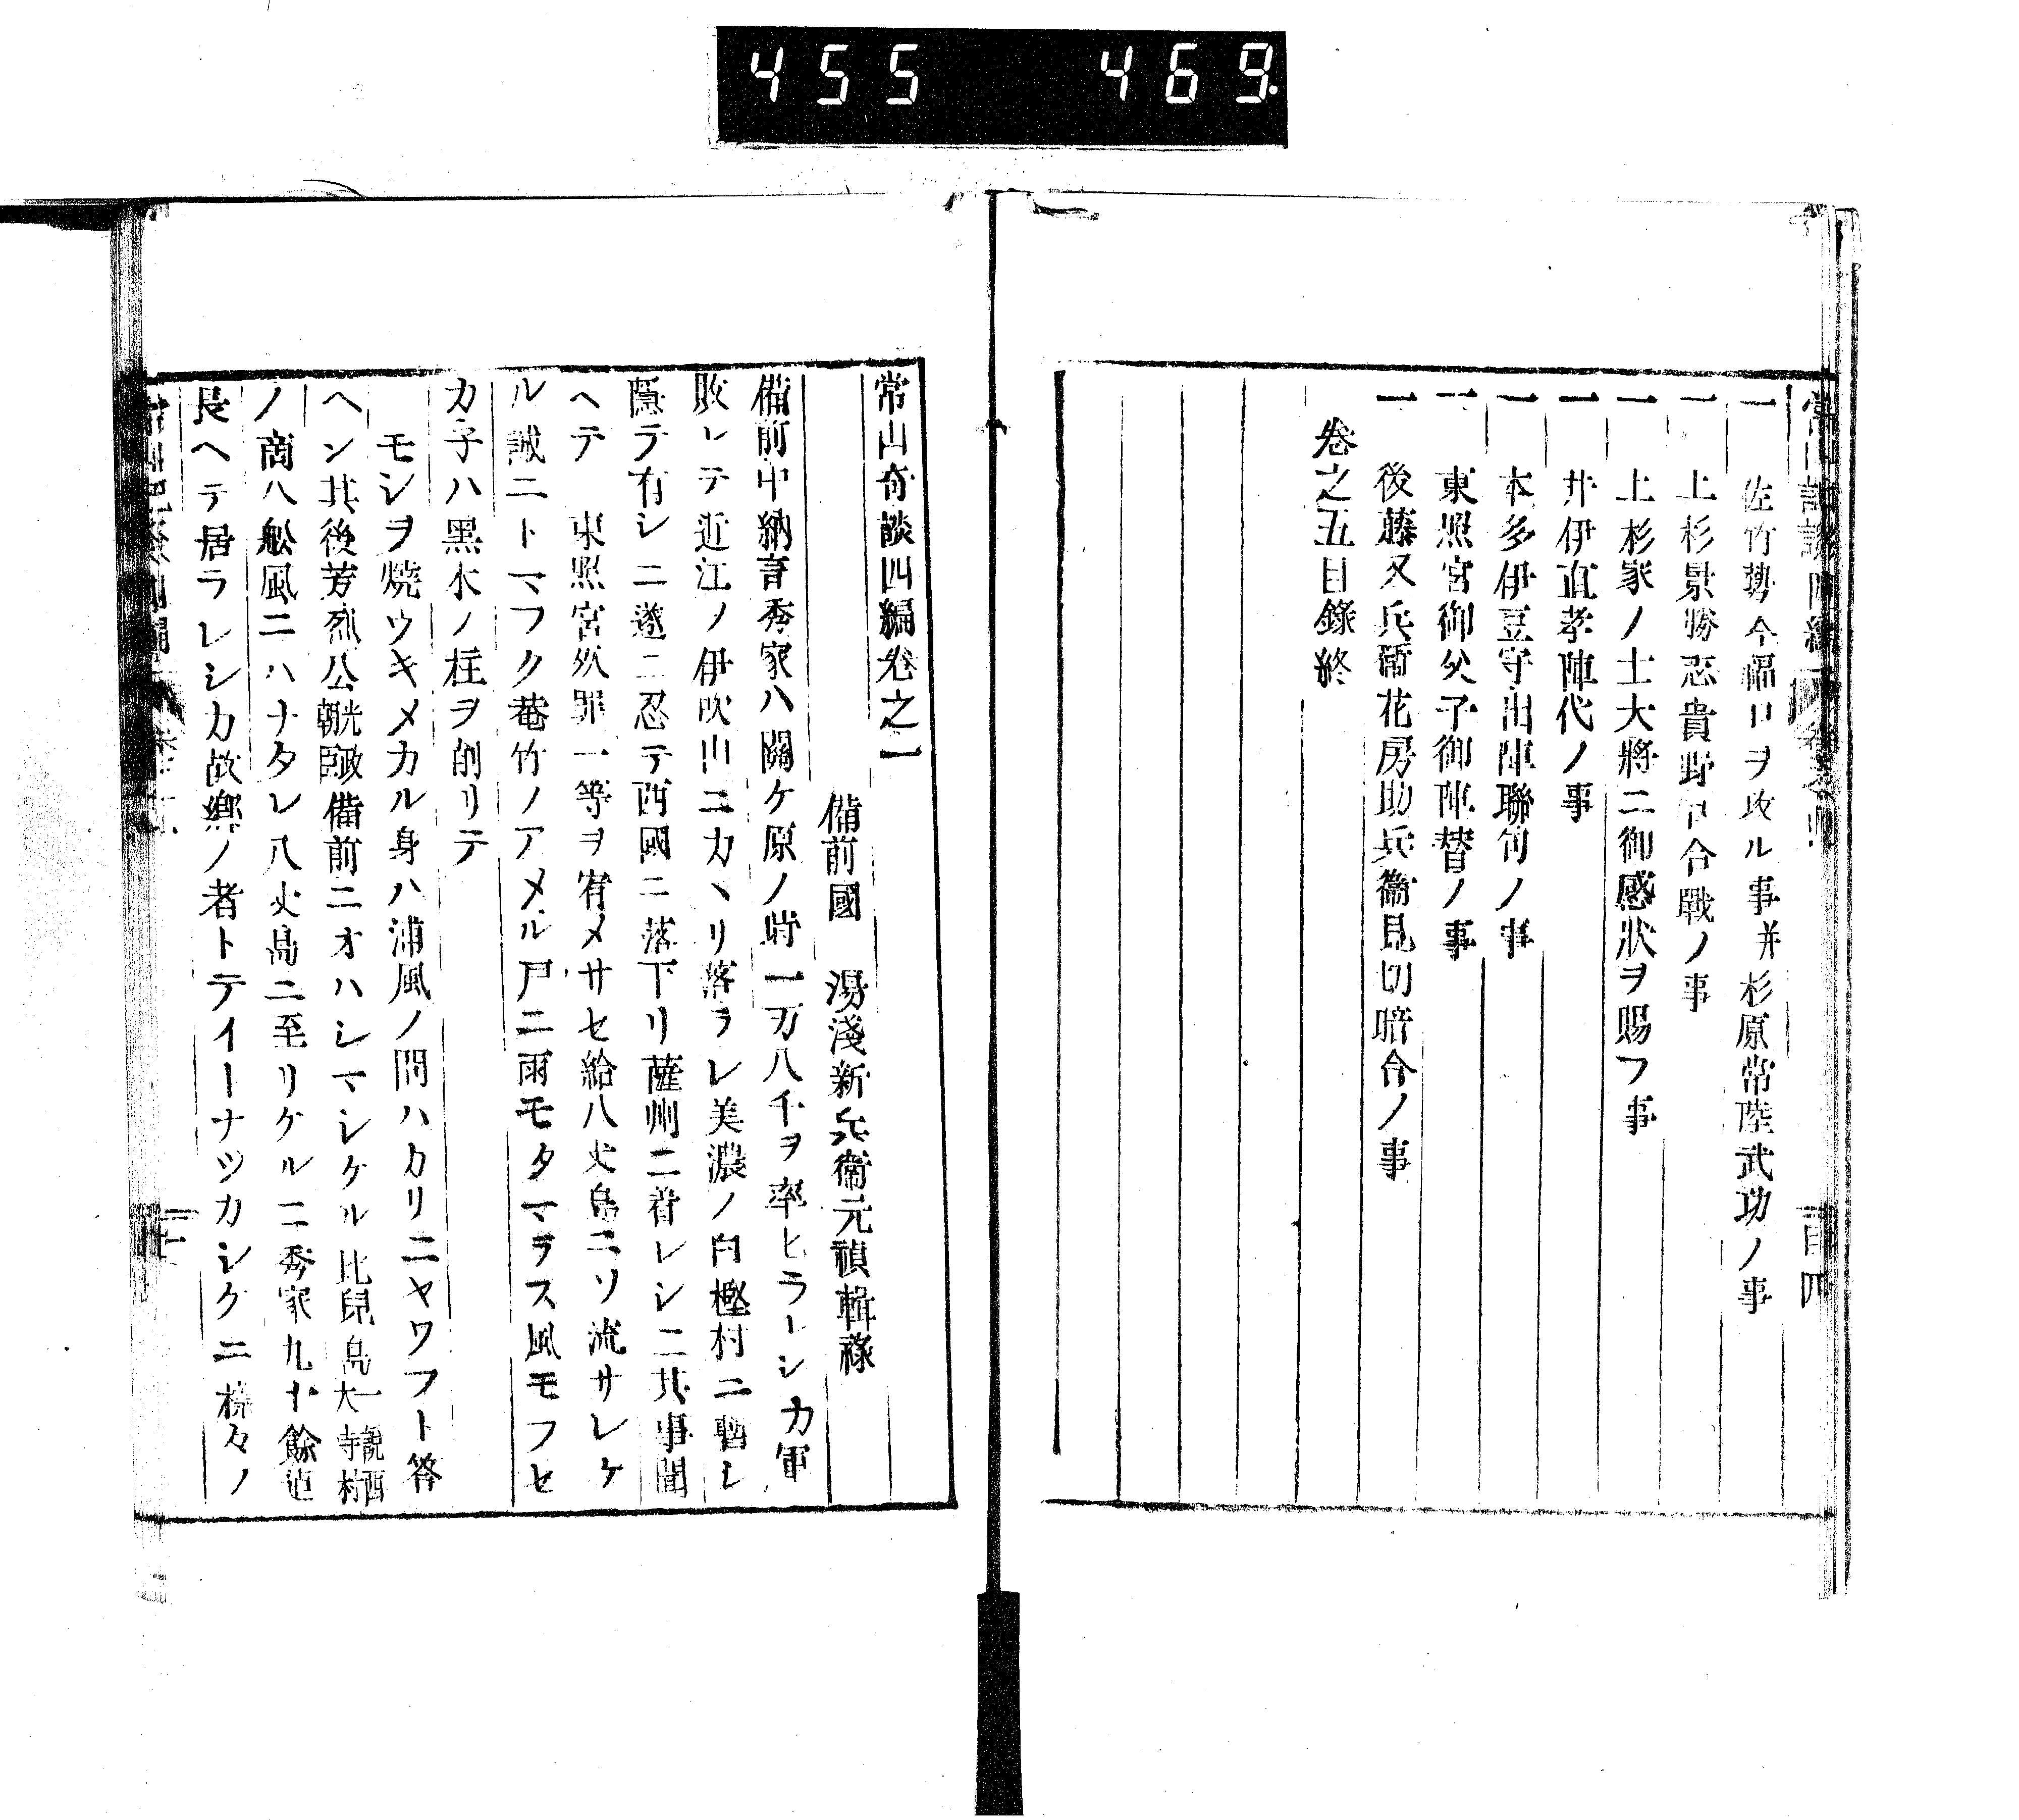 455 469.
一 佐竹勢今福口ヲ攻ル事并杉原常陸武功ノ事
一 上杉景勝志貴野口合戰ノ事
一 上杉家ノ士大將ニ御感狀ヲ賜フ事
一 井伊直孝陣代ノ事
一 本多伊豆守出陣聯句ノ事
一 東照宮御父子御陣替ノ事
一 後藤又兵衞花房助兵衞見切暗合ノ事
卷之五目錄終
常山奇談四編卷之一
備前國 湯淺新兵衞元禎輯祿
備前中納言秀家ハ關ケ原ノ時一万八千ヲ率ヒラレシカ軍
敗レテ近江ノ伊吹山ニカヽリ落ラレ美濃ノ白樫村ニ暫シ
隱テ有シニ遂ニ忍テ西國ニ落下リ薩州ニ着レシニ其事聞
ヘテ 東照宮死罪一等ヲ宥メサセ給八丈島ニソ流サレケ
ル誠ニトマフク菴竹ノアメル戸ニ雨モタマラス風モフセ
カ子ハ黑木ノ柱ヲ削リテ
モシヲ燒ウキメカル身ハ浦風ノ問ハカリニヤワフト答
ヘン其後芳烈公光政朝臣備前ニオハシマシケル比兒島一說西大寺村
ノ商人舩風ニハナタレ八丈島ニ至リケルニ秀家九十餘迠
長ヘテ居ラレシカ故鄕ノ者トテイーナツカシクニ樣々ノ